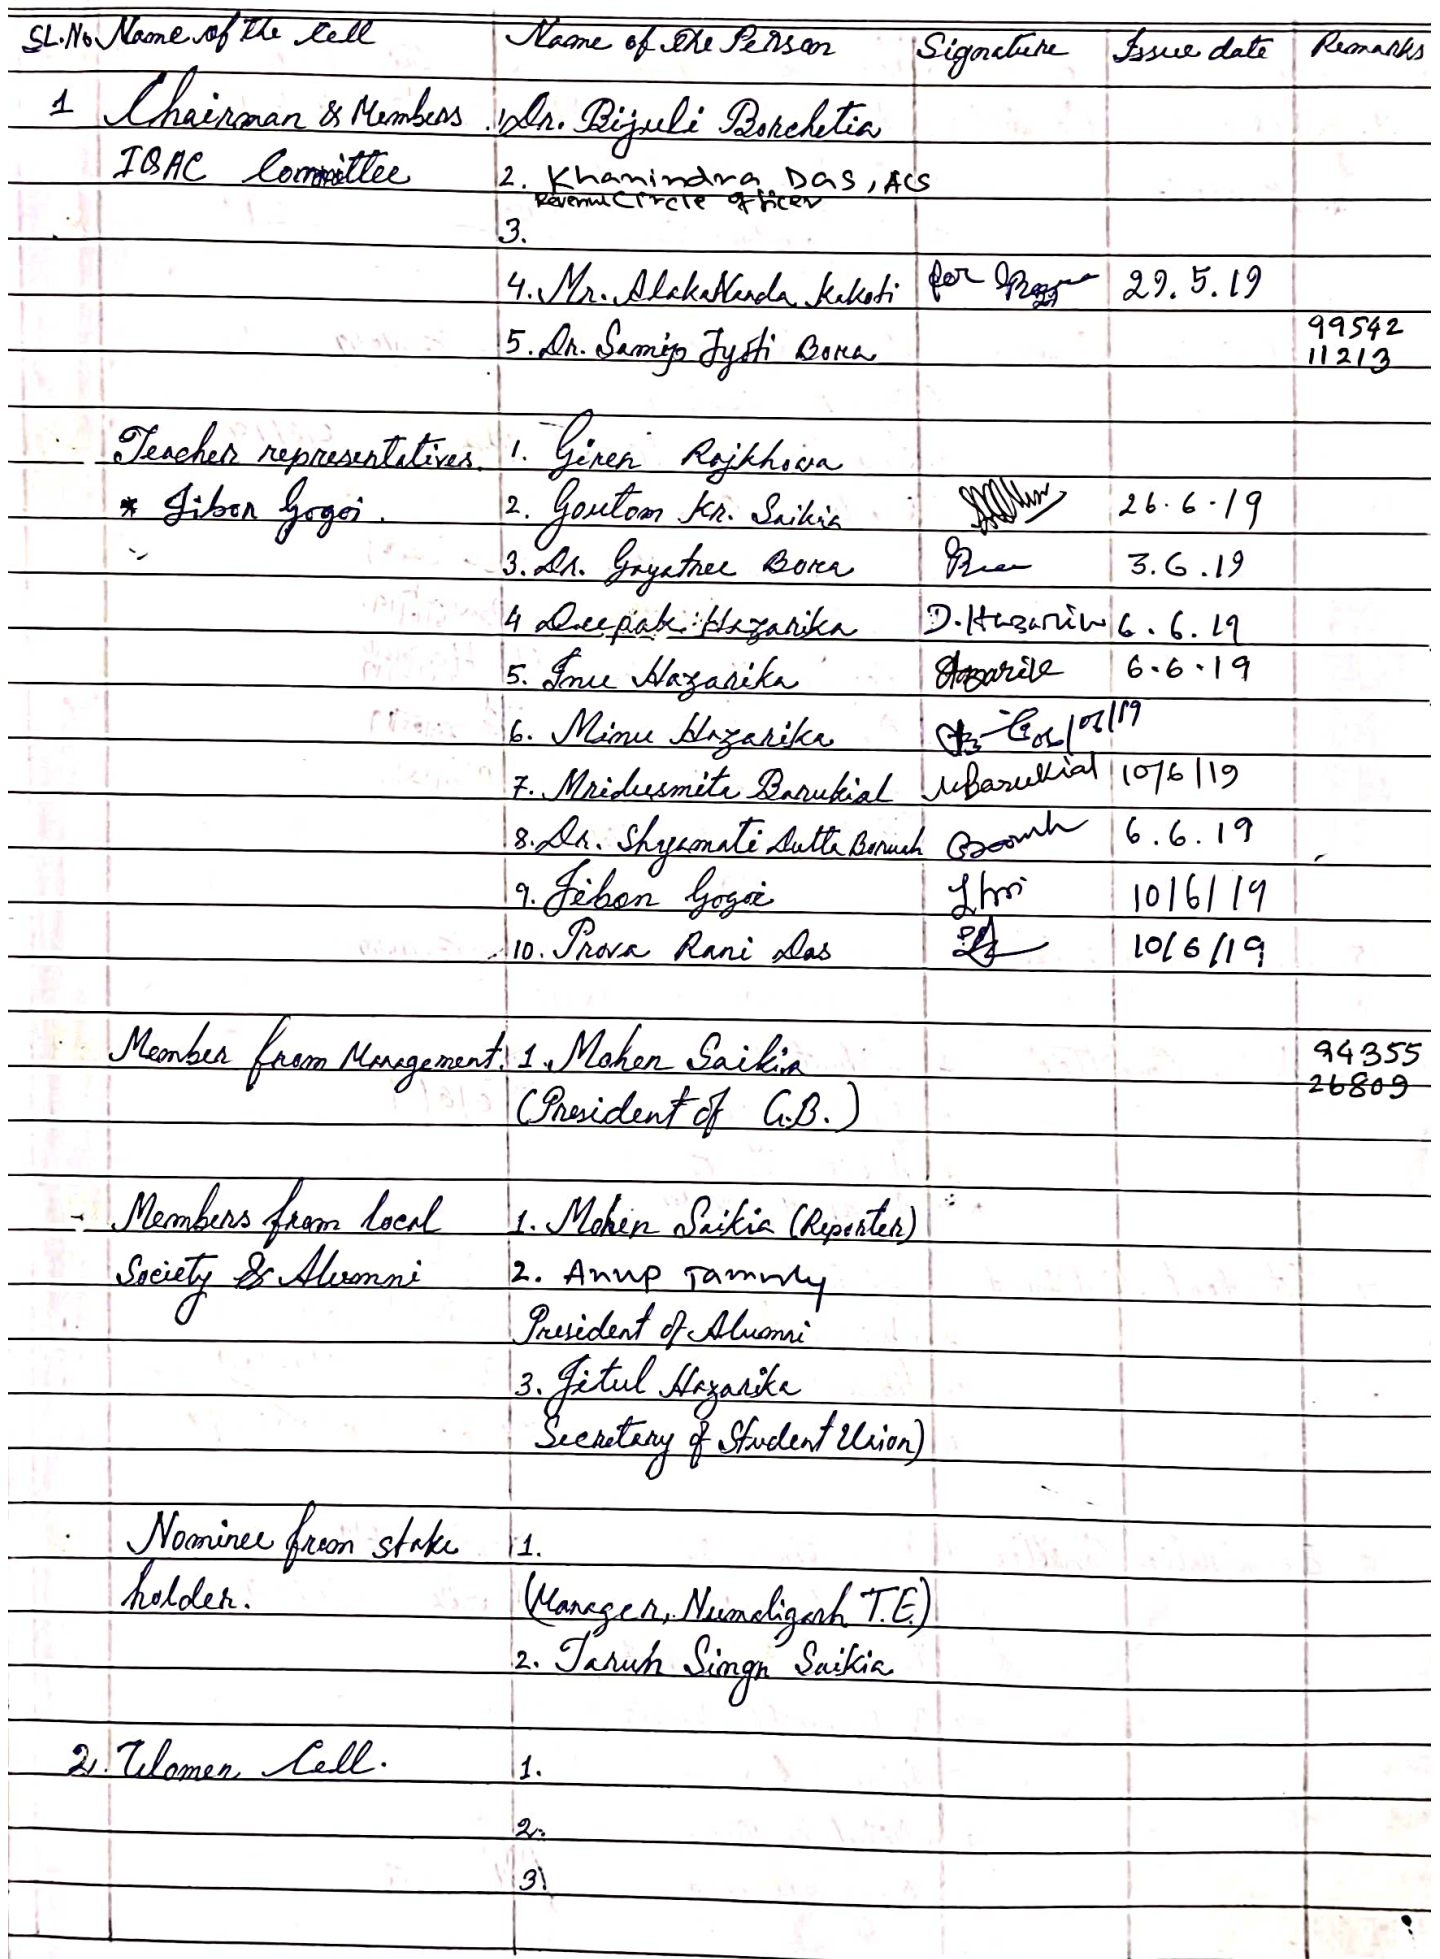 SL.No Name of the Cell Name of the Person Signature Issue date Remarks
1 Chairman & Members 1. Dr. Bijuli Borchetia
IQAC Committee 2. Khanindra Das, ACS
Revenue Circle Officer
3.
4. Mr. Alakananda Kakoti for 29.5.19
5. Dr. Samip Jyoti Bora 99542
11213
Teacher representatives. 1. Giren Rajkhowa
* Jibon Gogoi. 2. Goutom Kr. Saikia 26.6.19
3. Dr. Gayatree Bora 3.6.19
4 Deepak Hazarika D. Hazarika 6.6.19
5. Inu Hazarika Hazarika 6.6.19
6. Minu Hazarika
7. Mridusmita Barukial MBarukial 10/6/19
8. Dr. Shyamati Dutta Boruah 6.6.19
9. Jibon Gogoi 10/6/19
10. Prova Rani Das 10/6/19
Member from Management. 1. Mohen Saikia 94355
26809
(President of G.B.)
Members from local 1. Mohen Saikia (Reporter)
Society & Alumni 2. Anup Tamuly
President of Alumni
3. Jitul Hazarika
Secretary of Student Union)
Nominee from stake 1.
holder. (Manager, Numaligarh T.E.)
2. Taruh Singh Saikia
2. Women Cell. 1.
2.
3)